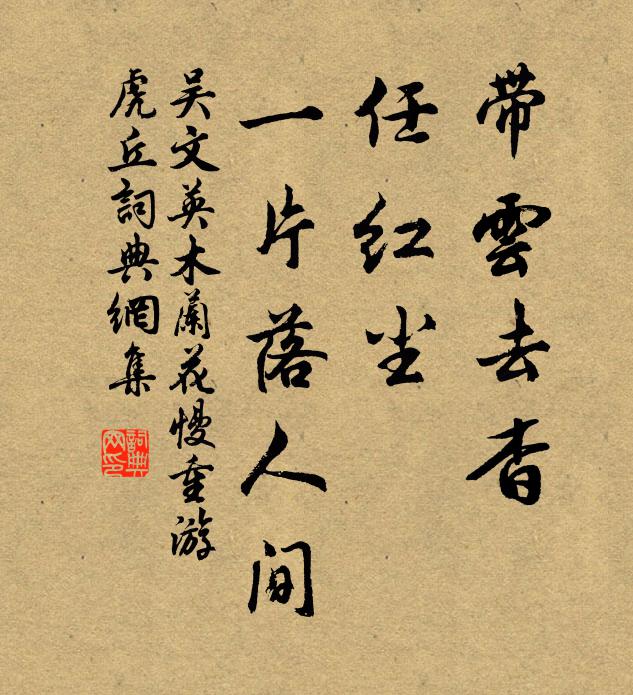 带雲去杳
任红尘
一片落人间
吴文英木蘭花慢重游
虎丘詞典網集
詞典
网印